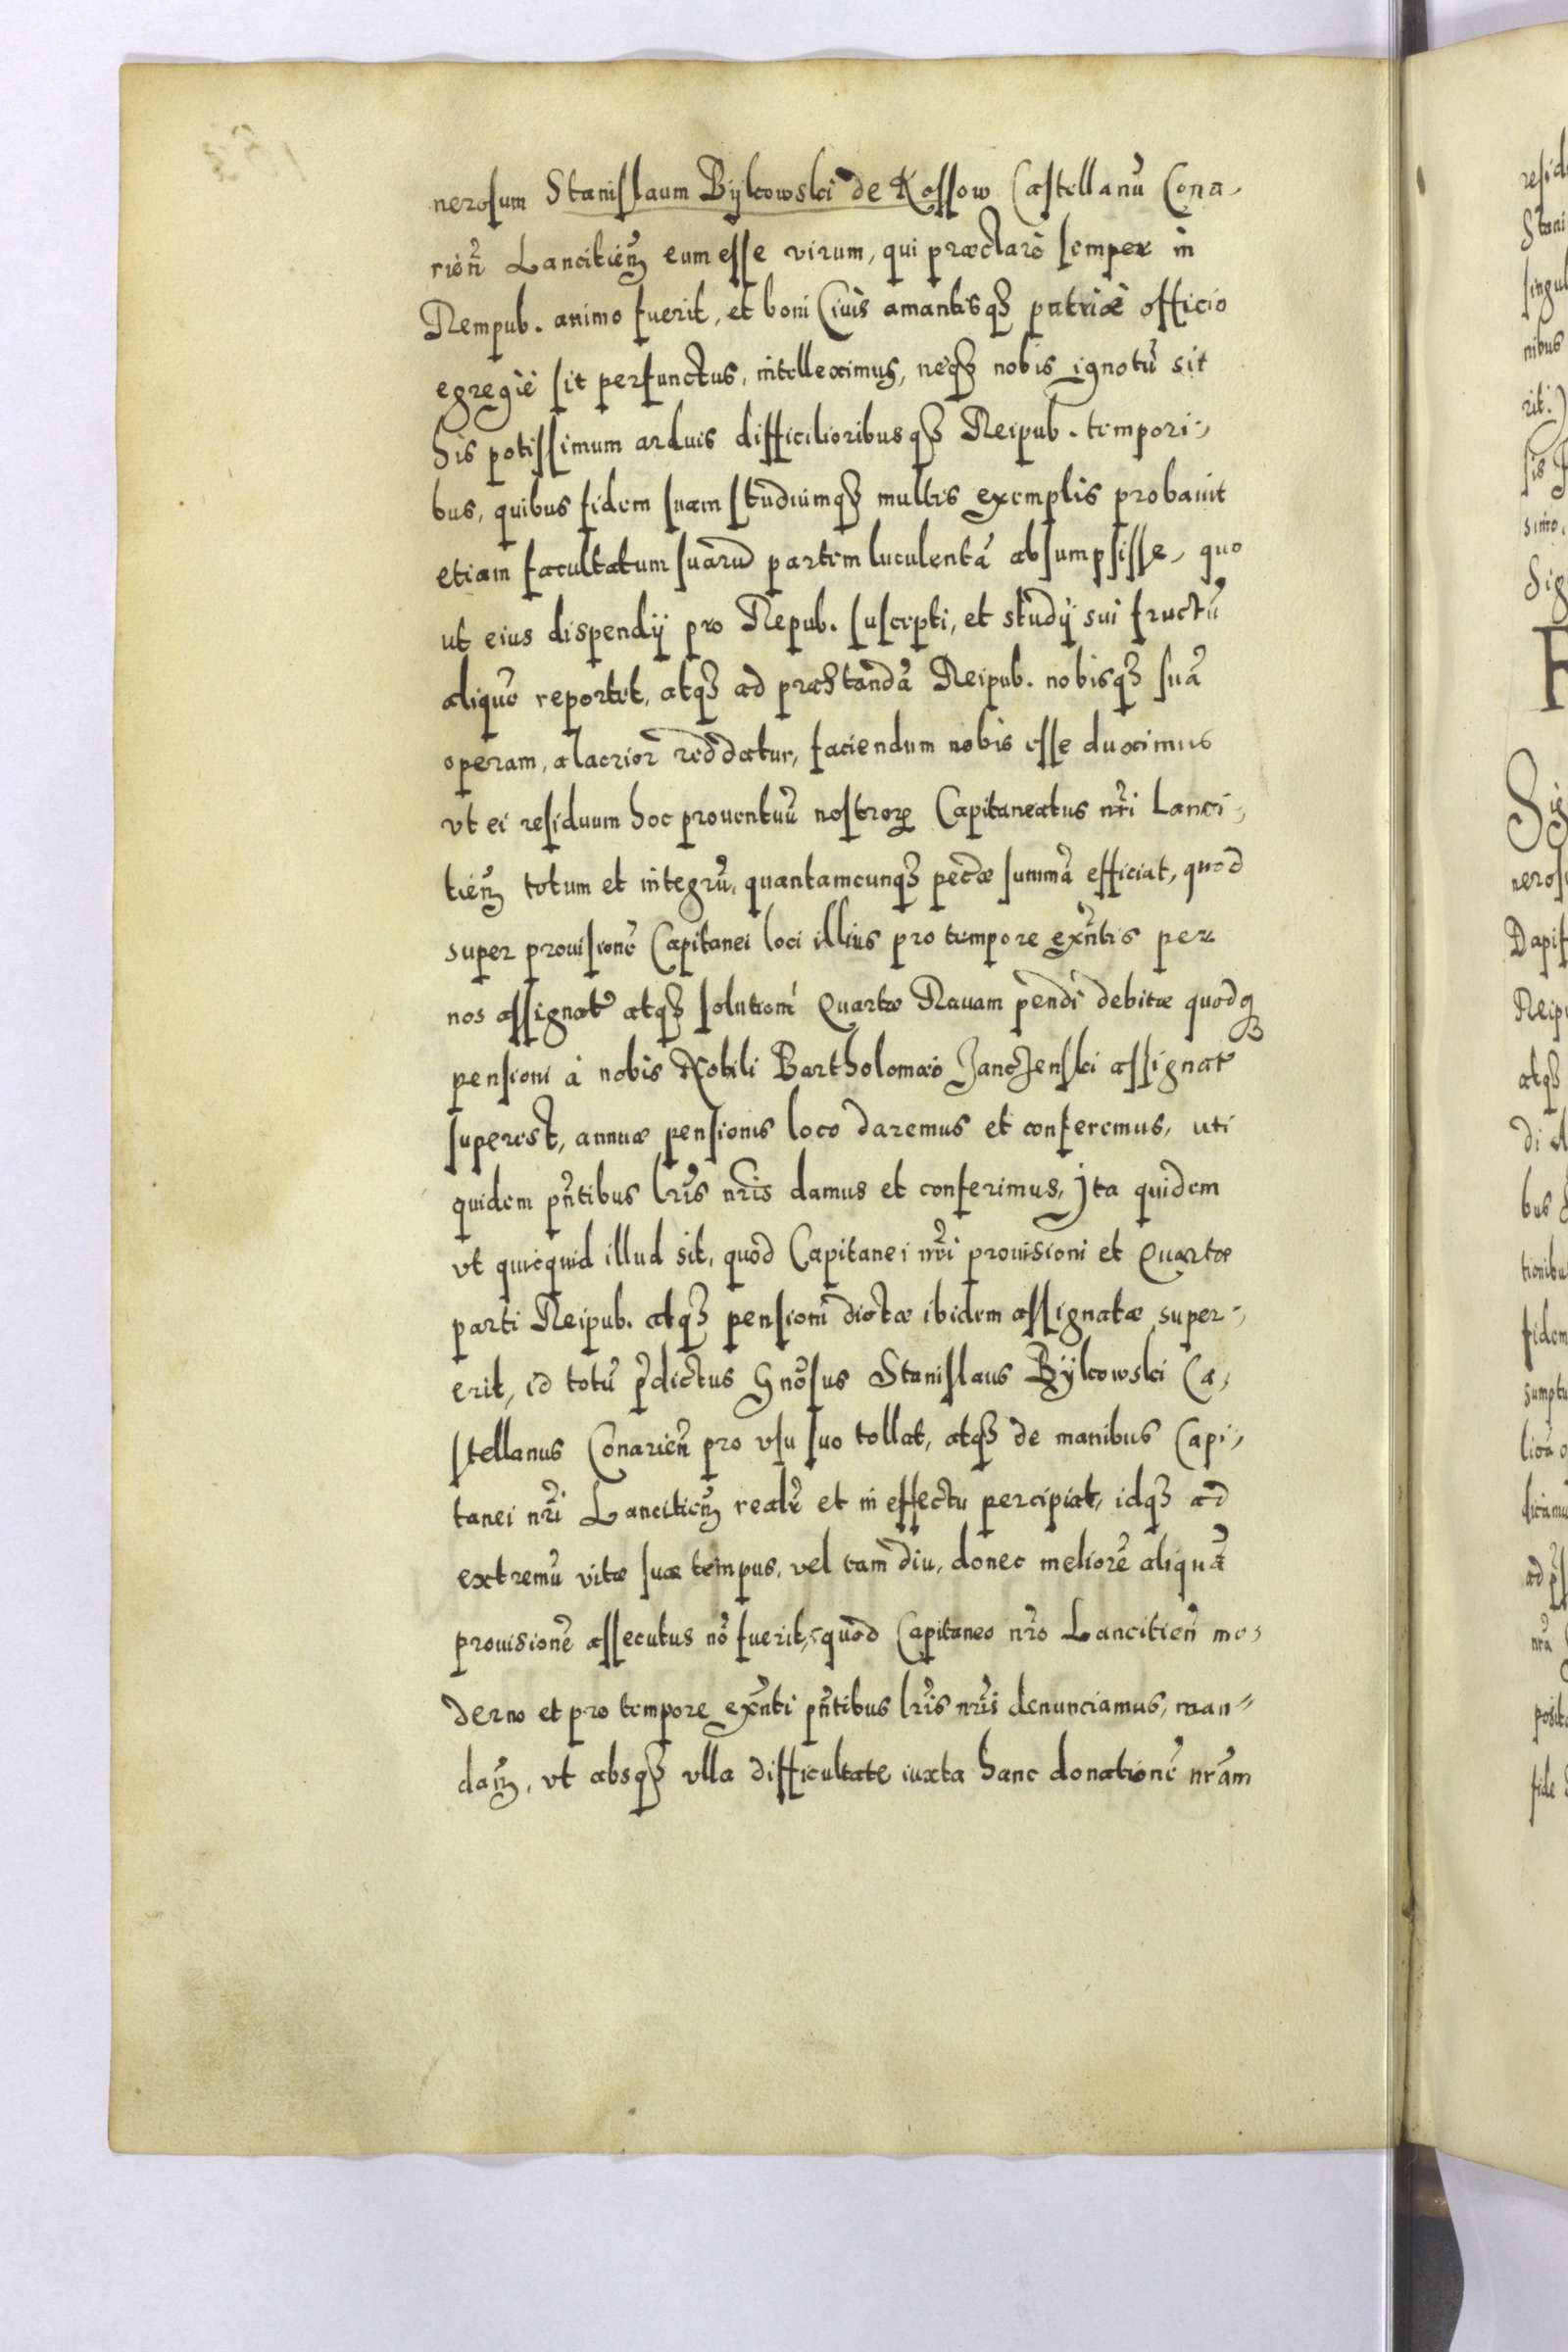 nerosum Stanislaum Bÿkowski de Kossow Castellanũ Cona-
rień Lancitień eum esse virum, qui præclarè semper in
Rempub. animo fuerit, et boni Ciuis amantisq3 patriæ officio
egregiè sit perfunctus, intelleximus, neq3 nobis ignotũ sit
his potissimum arduis difficilioribusq3 Reipub. tempori-
bus, quibus fidem suam studiumq3 multis exemplis probauit
etiam facultatum suarũ partem luculentã absumpsisse, quo
ut eius dispendÿ pro Repub. suscepti, et studÿ sui fructũ
aliquẽ reportet, atq3 ad præstandã Reipub. nobisq3 suã
operam, alacrior reddatur, faciendum nobis esse duximus
vt ei residuum hoc prouentuũ nostroꝝ Capitaneatus nr̃i Lanci-
tień totum et integrũ, quantamcunq3 pecũæ summã efficiat, quod
super prouisionẽ Capitanei loci illius pro tempore exñtis per
nos assignatæ atq3 solutioni Quartæ Rauam pendi debitæ quodq3
pensioni à nobis Nobili Bartholomæo Janczenski assignatæ
superest, annuæ pensionis loco daremus et conferemus, uti
quidem pñtibus lr̃is nr̃is damus et conferimus, Jta quidem
vt quicquid illud sit, quod Capitanei nr̃i prouisioni et Quartæ
parti Reipub. atq3 pensioni dictæ ibidem assignatæ super-
erit, id totũ p̃dictus Gnõsus Stanislaus Bÿkowski Ca-
stellanus Conarień pro vsu suo tollat, atq3 de manibus Capi-
tanei nr̃i Lancitień realr̃ et in effectu percipiat, idq3 ad
extremũ vitæ suæ tempus, vel tam diu, donec meliorẽ aliquã
prouisionẽ assecutus nõ fuerit, quod Capitaneo nr̃o Lancitień mo-
derno et pro tempore exñti pñtibus lr̃is nr̃is denunciamus, man-
dam̃, vt absq3 vlla difficultate iuxta hanc donationẽ nr̃am